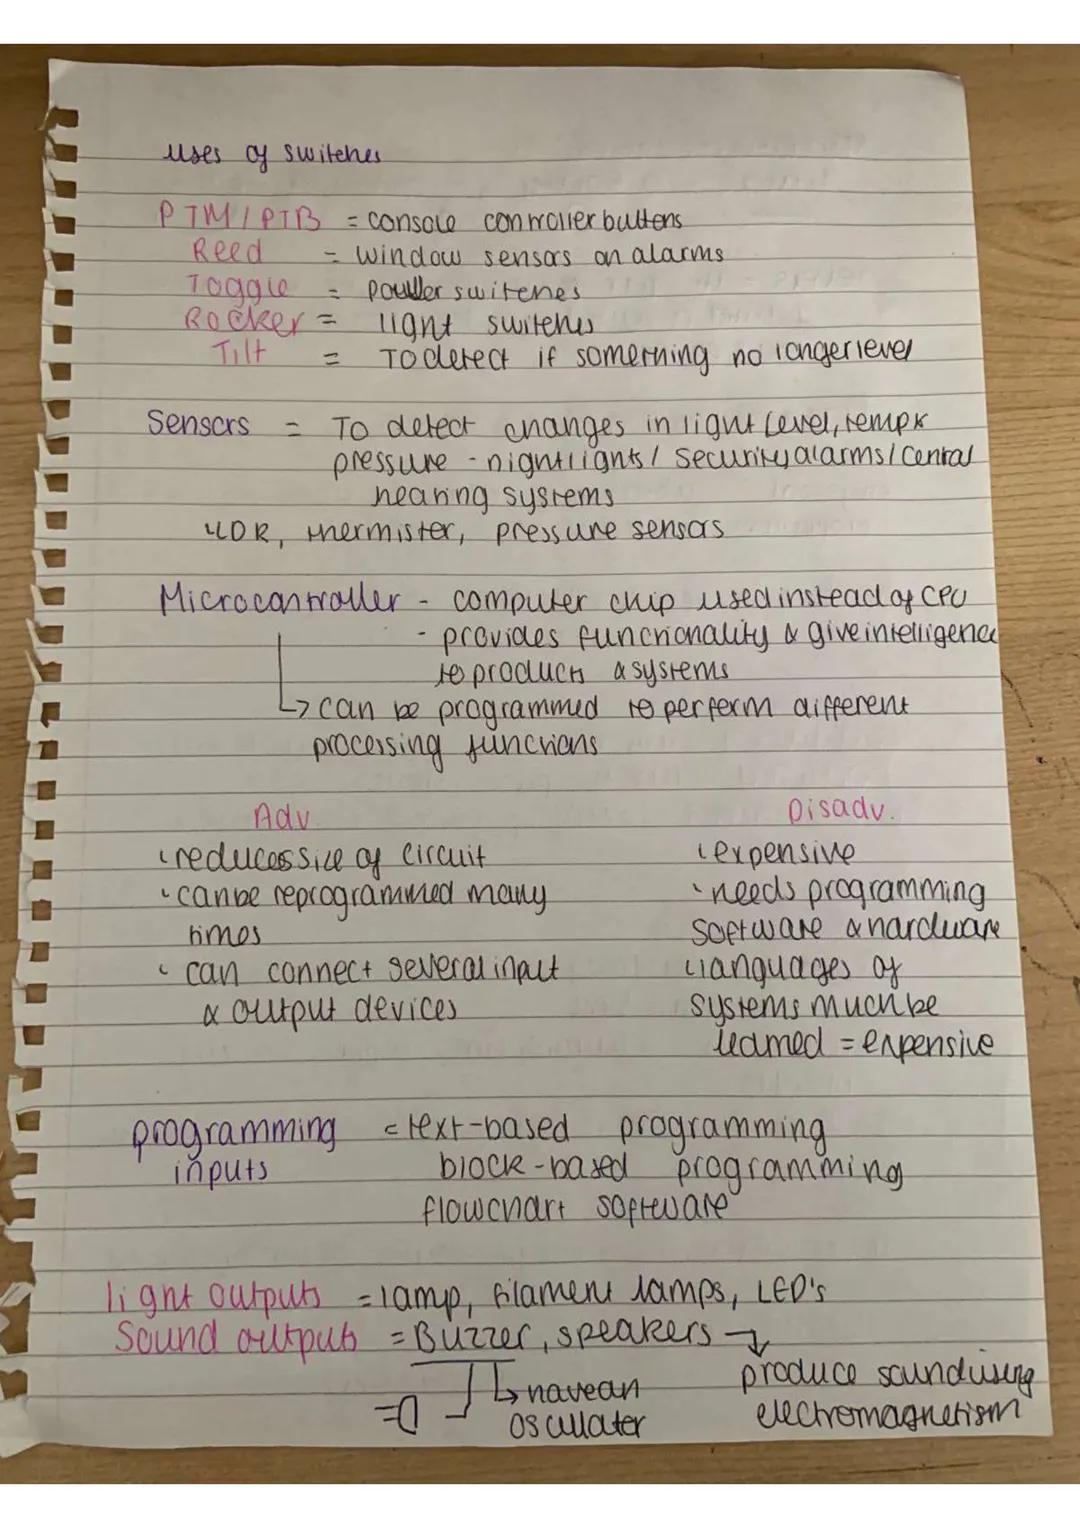 uses of switches
PTM / PTB = console controller buttons
Reed = window sensors on alarms
Toggle = power switches
Rocker = light switches
Tilt = To detect if something no longer level
Sensors = To detect changes in light level, temp &
pressure - nightlights / security alarms / central
heating systems
LDR, thermister, pressure sensors
Microcontroller - computer chip used instead of CPU
- provides functionality & give intelligence
to products & systems
↳ can be programmed to perform different
processing functions
Adv Disadv.
reduces size of circuit expensive
can be reprogrammed many needs programming
times software & hardware
can connect several input languages of
& output devices systems much be
learned = expensive
programming = text-based programming
inputs block-based programming
flowchart software
light outputs = lamp, filament lamps, LED's
Sound outputs = Buzzer, speakers →
↳ have an produce sound using
osculater electromagnetism